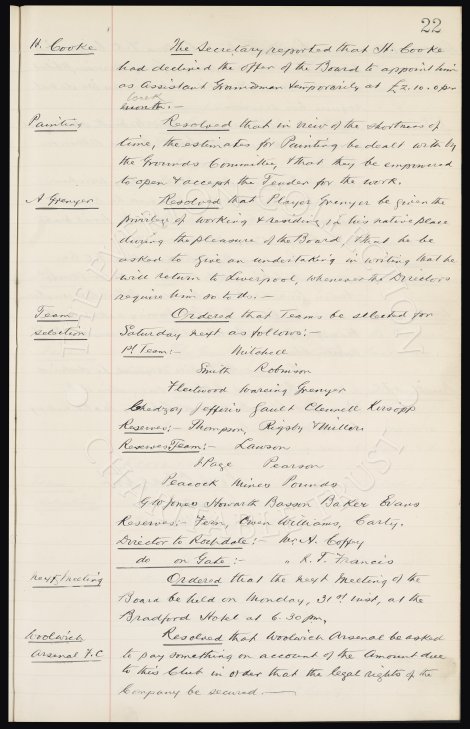 22
H. Cooke The Secretary reported that H. Cooke
had declined the offer of the Board to appoint him
as Assistant Groundsman temporarily at £2.10.0 per
week
month. —
Painting Resolved that in view of the shortness of
time, the estimates for Painting be dealt with by
the Grounds Committee, & that they be empowered
to open & accept the Tender for the work.
A Grenyer Resolved that Player Grenyer be given the
privilege of working & residing in his native place
during the pleasure of the Board, & that he be
asked to give an undertaking in writing that he
will return to Liverpool, whenever the Directors
require him so to do. —
Team Ordered that Teams be selected for
selection Saturday next as follows:—
1st Team:— Mitchell
Smith Robinson
Fleetwood Wareing Grenyer
Chedgzoy Jefferis Gault Clennell Kirsopp
Reserves:— Thompson, Rigsby & Millar
Reserves Team:— Lawson
Page Pearson
Peacock Mines Pounds
G W Jones Howarth Basson Baker Evans
Reserves:— Fern, Owen Williams, Carty.
Director to Rochdale:— Mr. A. Coffey
do on Gate:— " K. T. Francis
next meeting Ordered that the next Meeting of the
Board be held on Monday, 31st inst, at the
Bradford Hotel at 6.30 pm.
Woolwich Resolved that Woolwich Arsenal be asked
Arsenal F.C to pay something on account of the amount due
to this Club in order that the legal rights of the
Company be secured —